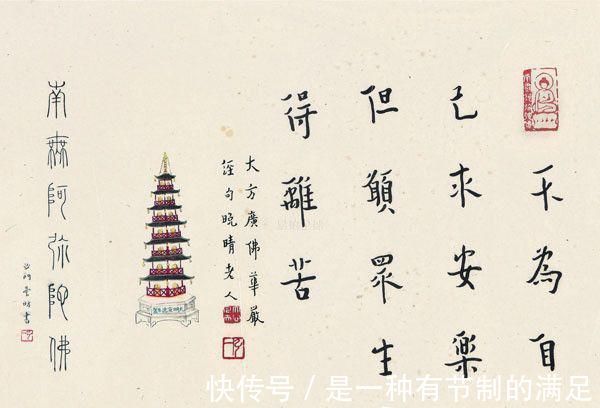 不為自
己求安樂
但願眾生
得離苦
大方廣佛華嚴
經句晚晴老人
南無阿弥陀佛
沙門曇昉書
快传号 / 是一种有节制的满足